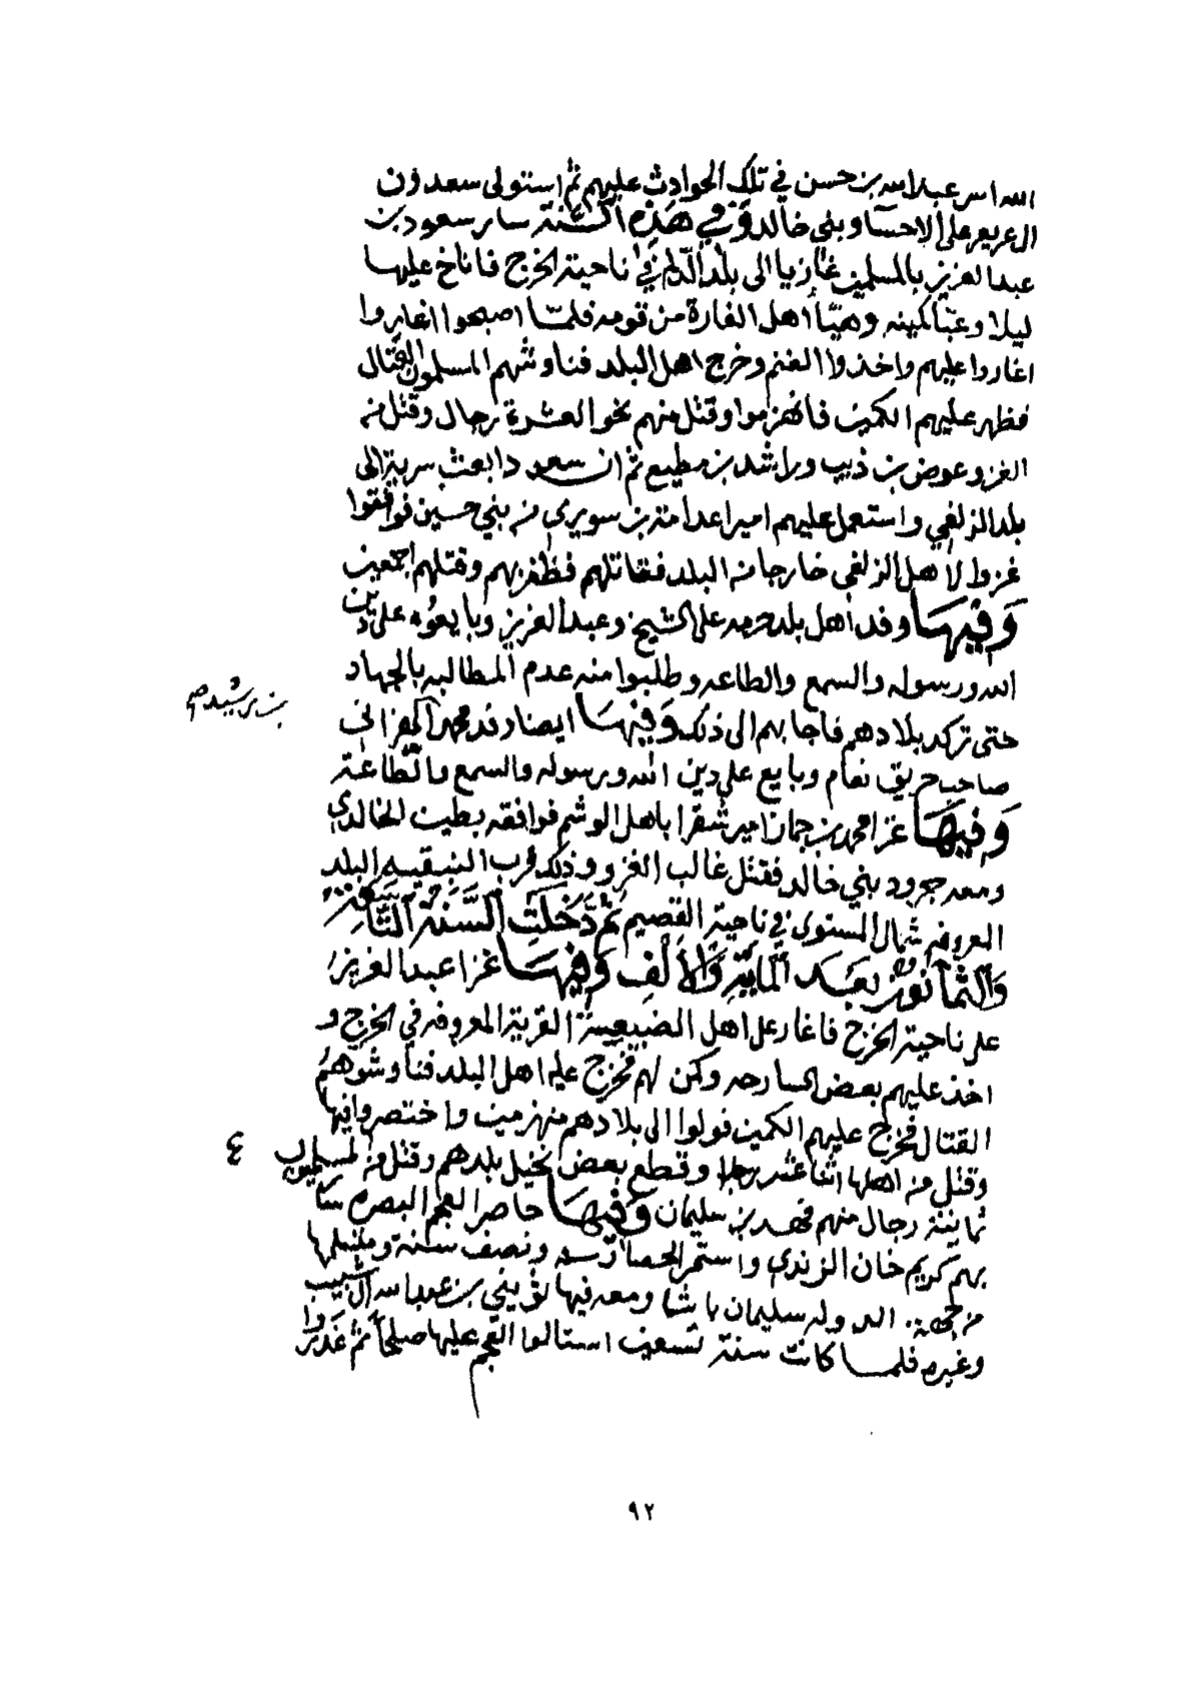 الله اسر عبدالله بن حسن في تلك الحوادث عليهم ثم استولى سعدون
ال عريعر على الاحسا وبني خالد وفي هذه السنة سار سعود بن
عبدالعزيز بالمسلمين غازيا الى بلد الدلم في ناحية الخرج فاناخ عليها
ليلا وعبّا كمينه وهيّأ اهل الغارة من قومه فلمّا اصبحوا اغاروا
اغاروا عليهم واخذوا الغنم وخرج اهل البلد فناوشهم المسلمون القتال
فظهر عليهم الكمين فانهزموا وقتل منهم نحو العشرة رجال وقتل من
الغزو عوض بن ذيب وراشد بن مطيع ثم ان سعودا بعث سرية الى
بلد الزلفي واستعمل عليهم اميرا عدامة بن سويري من بني حسين فوافقوا
غزوا لاهل الزلفي خارجا من البلد فقاتلهم فظفر بهم وقتلهم اجمعين
وَفِيهَا وفد اهل بلد حرمه على الشيخ وعبدالعزيز وبايعوه على دين
الله ورسوله والسمع والطاعه وطلبوا منه عدم المطالبه بالجهاد
بن رشيد صح
حتى تركد بلادهم فاجابهم الى ذلك وَفِيهَا ايضا وفد محمد الهزاني
صاحب حريق نعام وبايع على دين الله ورسوله والسمع والطاعة
وَفِيهَا غزا محمد بن جماز امير شقرا باهل الوشم فوافقه بطين الخالدي
ومعه جرود بني خالد فقتل غالب الغزو وذلك قرب النبقيه البلد
المعروفه شمال المستوي في ناحية القصيم ثُمَّ دَخَلَتِ السَّنَةُ التَّاسِعَة
وَالثمانون بَعْدَ المَايَةِ وَالأَلف وَفِيهَا غزا عبدالعزيز
على ناحية الخرج فاغار على اهل الضبيعة القرية المعروفه في الخرج و
اخذ عليهم بعض السارحه وكمن لهم فخرج عليه اهل البلد فناوشوهم
القتال فخرج عليهم الكمين فولوا الى بلادهم منهزمين واختصروا فيها
وقتل من اهلها اثنا عشر رجلا وقطع بعض نخيل بلدهم وقتل من المسلمين
٤
ثمانية رجال منهم فهد بن سليمان وَفِيهَا حاصر العجم البصره سا
بهم كريم خان الزندي واستمر الحصار سنه ونصف سنة ومتسلمها
من جهة الدوله سليمان باشا ومعه فيها ثويني بن عبدالله ال شبيب
وغيره فلما كانت سنة تسعين استالوا العجم عليها صلحاً ثم غدروا
٩٢